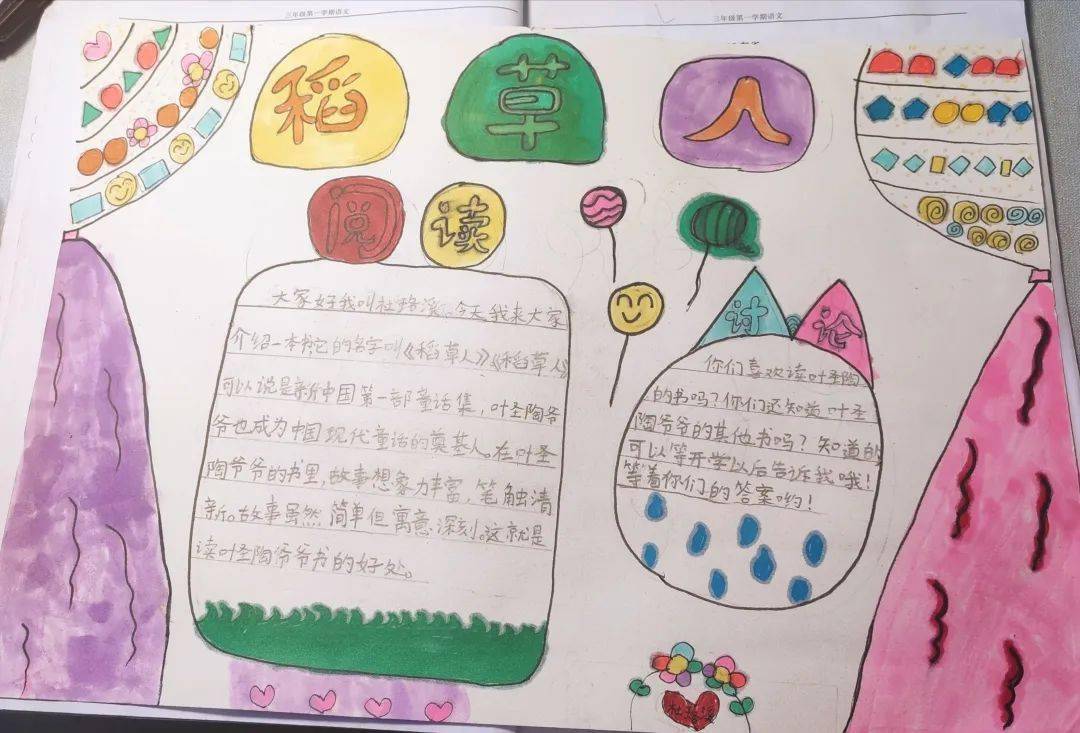 三年级第一学期语文
三年级第一学期语文
稻草人
阅读
大家好我叫杜珞溪.今天我来大家
介绍一本书它的名字叫《稻草人》《稻草人》
可以说是新中国第一部童话集，叶圣陶爷
爷也成为中国现代童话的奠基人。在叶圣
陶爷爷的书里，故事想象力丰富，笔触清
新。故事虽然简单但寓意深刻。这就是
读叶圣陶爷爷书的好处。
讨论
你们喜欢读叶圣陶
的书吗？你们还知道叶圣
陶爷爷的其他书吗？知道的
可以等开学以后告诉我哦！
等着你们的答案哟！